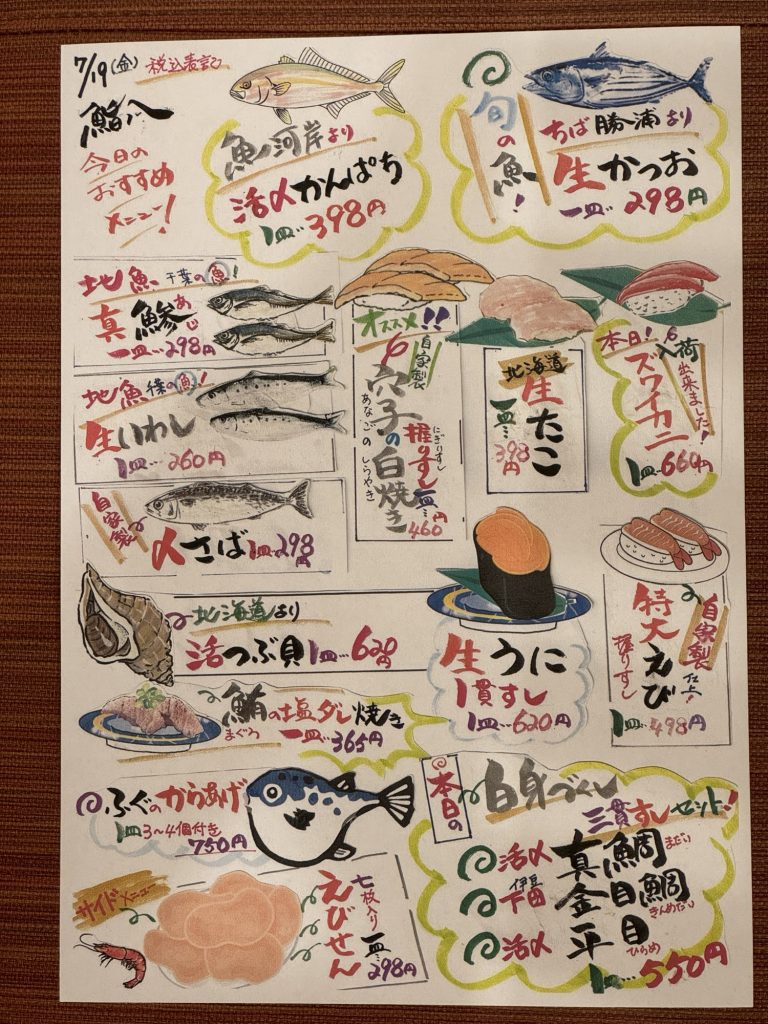 7/19(金) 税込表記
鮨八
今日の
おすすめ
メニュー!
魚河岸より
活〆かんぱち
1皿…398円
旬の魚!
ちば勝浦より
生かつお
一皿…298円
地魚 千葉の魚!
真鯵 あじ
一皿…298円
地魚 千葉の魚!
生いわし
1皿…260円
自家製
〆さば 1皿…298円
オススメ!!
自家製
穴子の白焼き
あなごのしらやき
握りすし 一皿…460円
にぎりすし
北海道
生たこ
一皿…398円
本日!入荷出来ました!
ズワイカニ
1皿…660円
北海道より
活つぶ貝 1皿…620円
生うに
1貫すし
1皿…620円
自家製仕上!
特大えび
握りすし
1皿…498円
鮪の塩ダレ焼き
まぐろ
一皿…365円
ふぐのからあげ
1皿3〜4個付き
750円
サイドメニュー
えびせん
七枚入り
一皿…298円
本日の
白身づくし
三貫すしセット!
活〆 真鯛 まだい
伊豆
下田 金目鯛 きんめだい
活〆 平目 ひらめ
1皿…550円